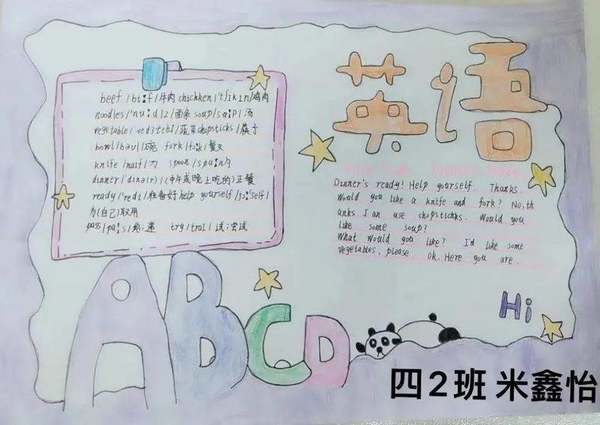 英语
beef /bi:f/牛肉 chickken /'tʃikin/鸡肉
noodles /'nu:dlz/ 面条 soup /su:p/ 汤
vegetable / 蔬菜 chopsticks / 筷子
bowl /bəul/ 碗 fork /fɔ:k/ 餐叉
knife /naif/ 刀 spoon /spu:n/勺
dinner / (中午或晚上吃的)正餐
ready /'redi/准备好 help yourself
(自己)取用
pass /pɑ:s/ 递 try /trai/ 试;尝试
Dinner's ready! Help yourself. Thanks.
Would you like a knife and fork? No, th
anks. I an use chopstichks. Would you
like some soup?
What Would you like? I'd like some
Vegetables, please ok. Here you are.
ABCD
Hi
四2班 米鑫怡